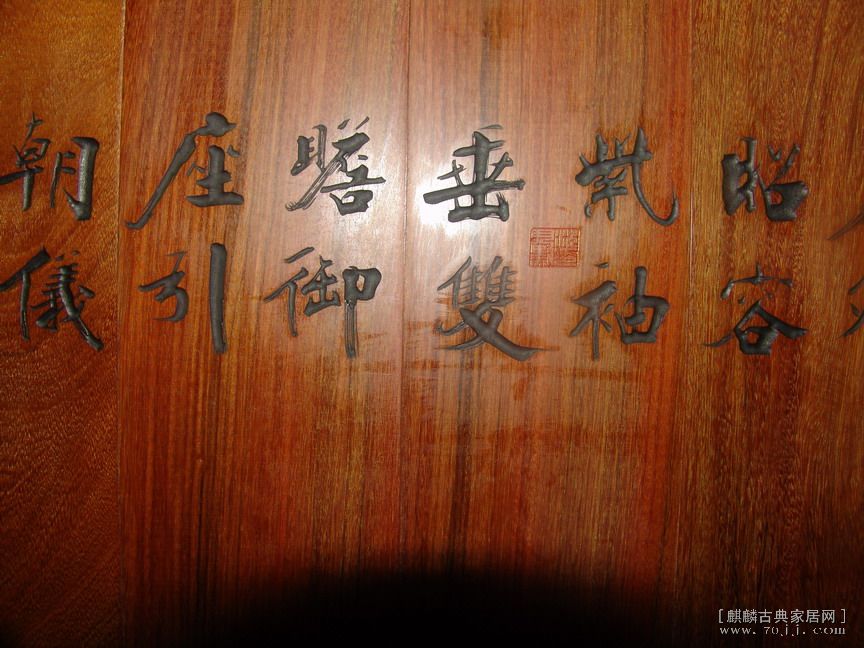 昭容
紫袖
垂雙
瞻御
座引
朝儀
[麒麟古典家居网]
www.76jj.com